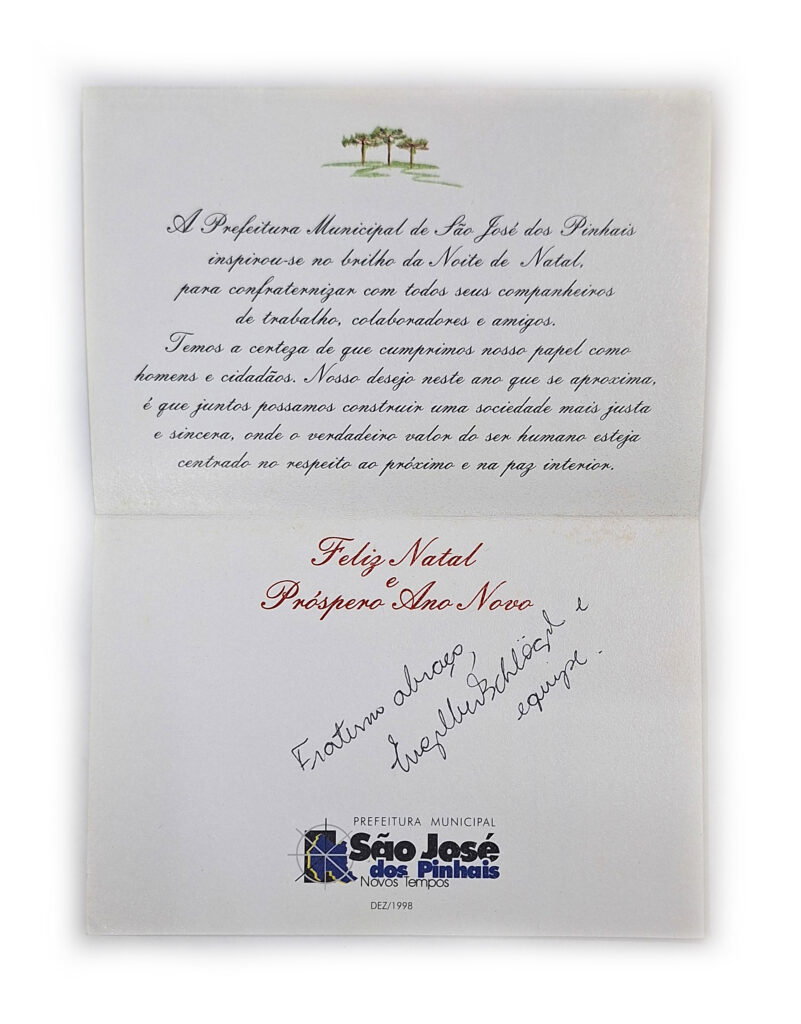 A Prefeitura Municipal de São José dos Pinhais
inspirou-se no brilho da Noite de Natal,
para confraternizar com todos seus companheiros
de trabalho, colaboradores e amigos.
Temos a certeza de que cumprimos nosso papel como
homens e cidadãos. Nosso desejo neste ano que se aproxima,
é que juntos possamos construir uma sociedade mais justa
e sincera, onde o verdadeiro valor do ser humano esteja
centrado no respeito ao próximo e na paz interior.
Feliz Natal
e
Próspero Ano Novo
Fraterno abraço,
Engelbert Schlögel e
equipe.
PREFEITURA MUNICIPAL
São José
dos Pinhais
Novos Tempos
DEZ/1998